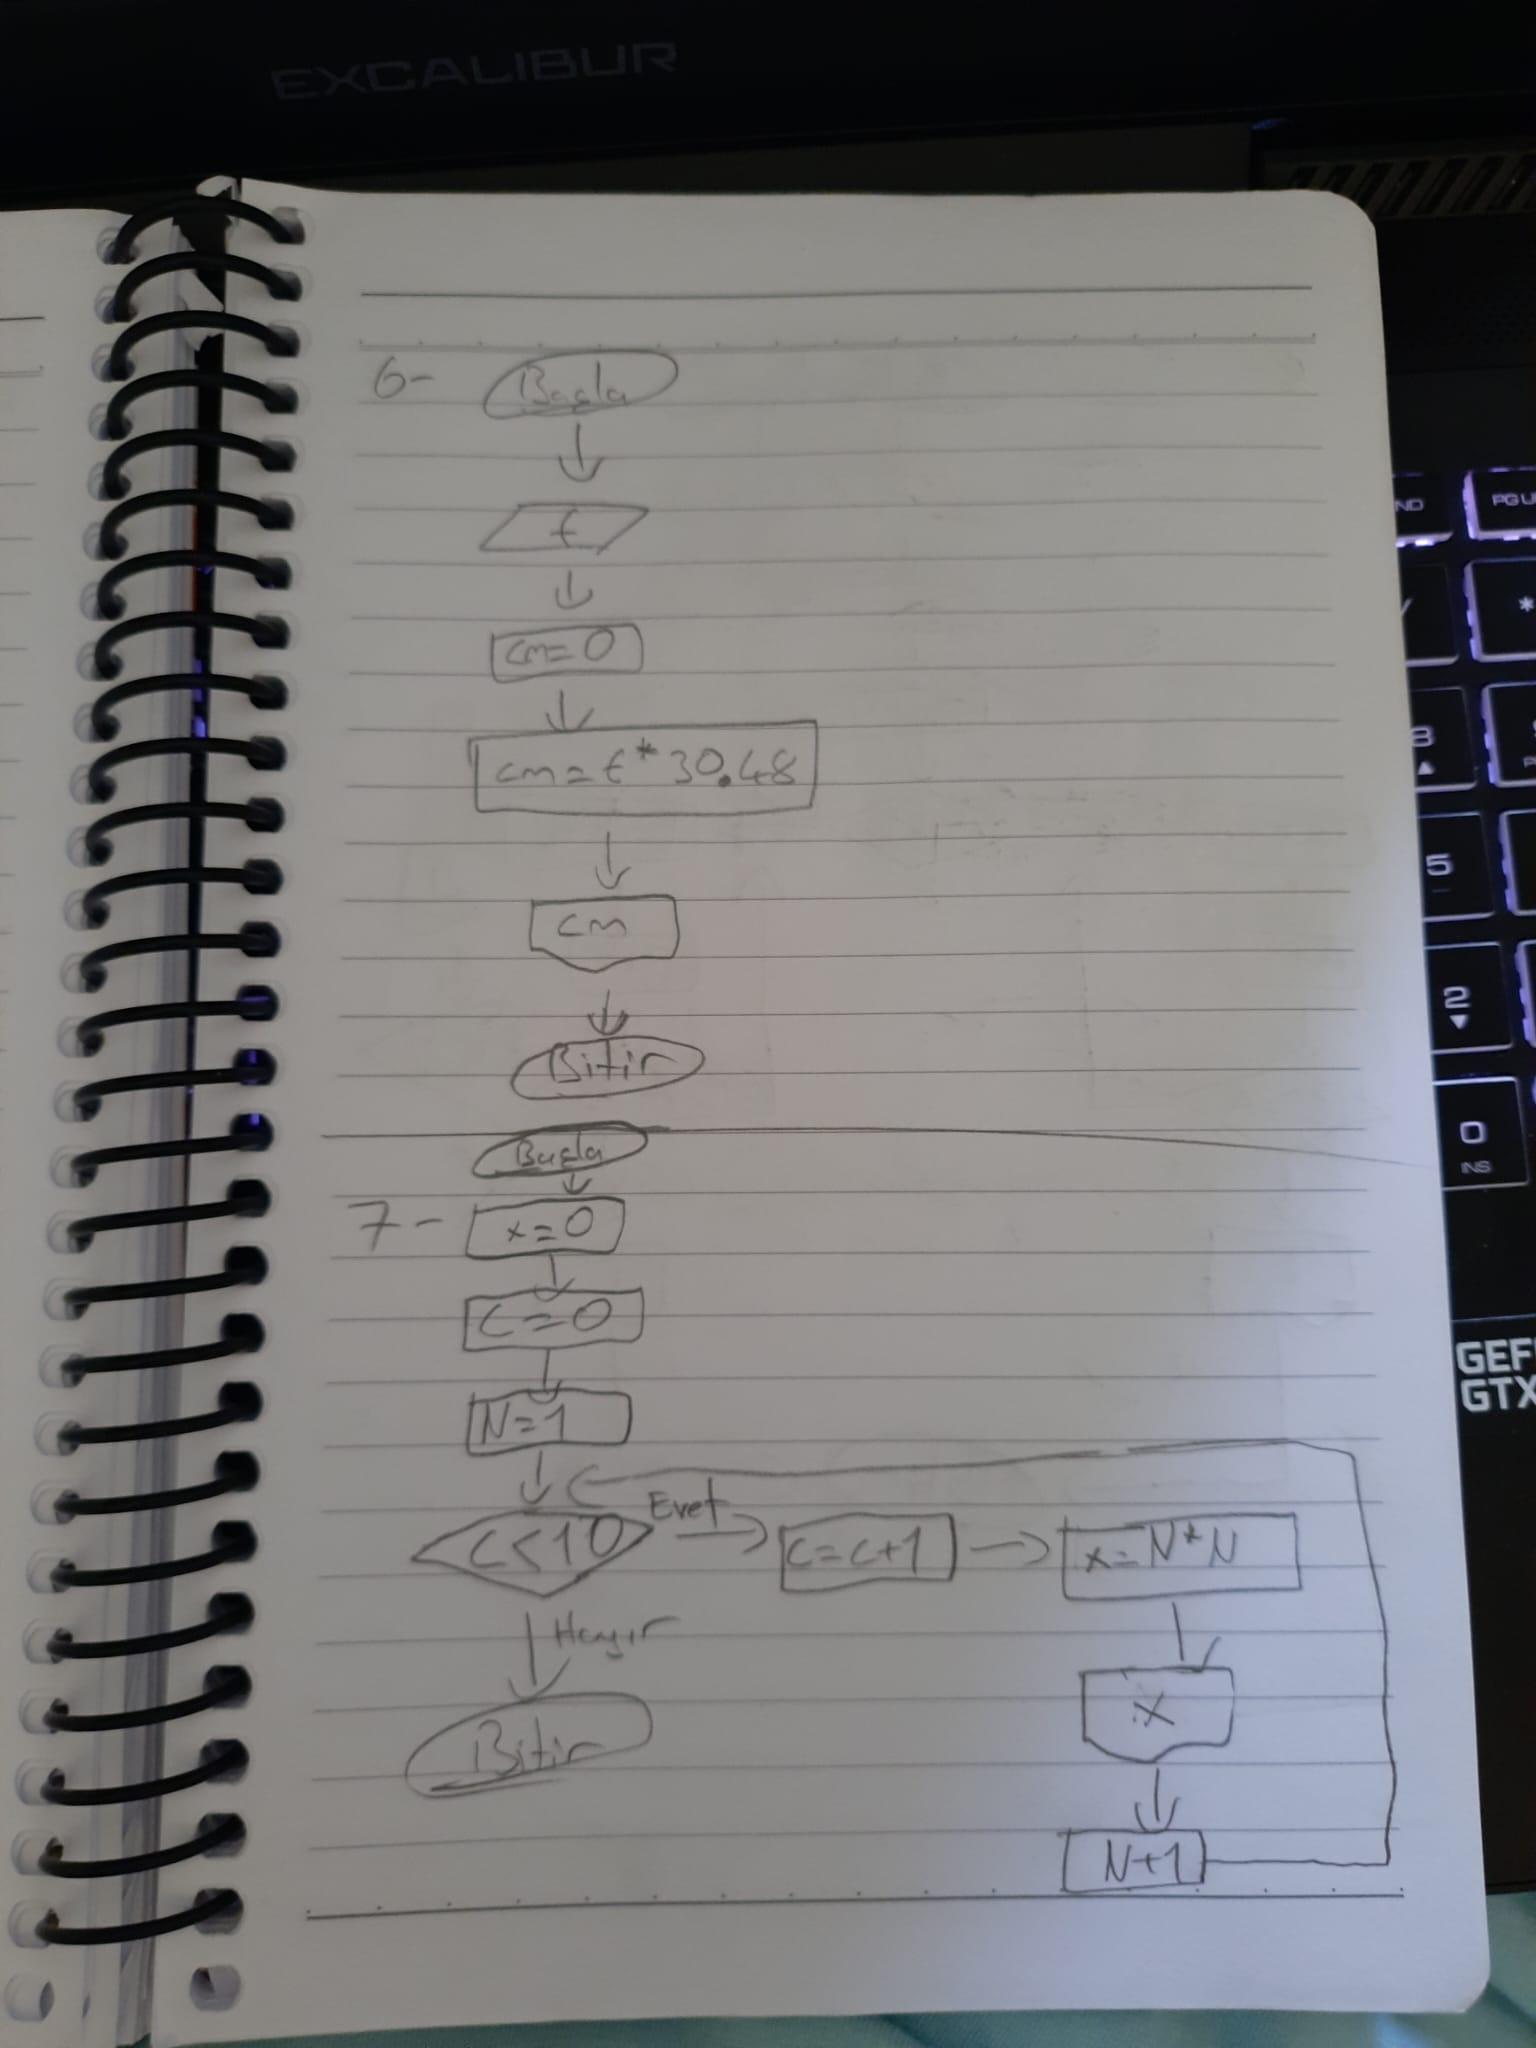 EXCALIBUR
6- Başla
f
cm=0
cm=f*30.48
cm
Bitir
Başla
7- x=0
C=0
N=1
C<10 Evet C=C+1 x=N*N
Hayır
x
Bitir
N+1
PG U
*
5
2
0
INS
GEF
GTX